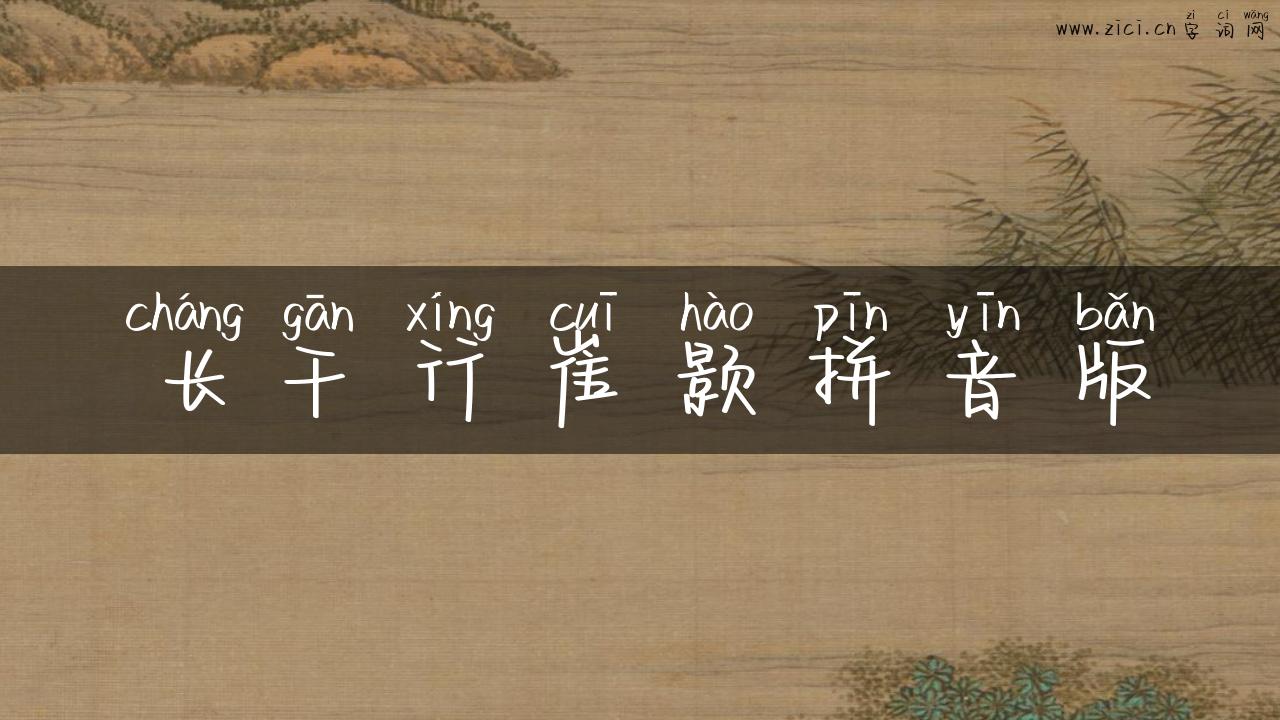 zì cí wǎng
www.zici.cn 字词网
cháng gān xíng cuī hào pīn yīn bǎn
长干行崔颢拼音版